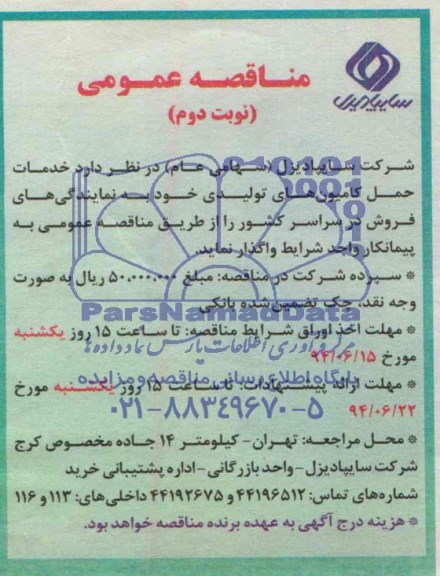 سایپادیزل
مناقصه عمومی
(نوبت دوم)
شرکت سایپادیزل (سهامی عام) در نظر دارد خدمات
حمل کامیون‌های تولیدی خود به نمایندگی‌های
فروش در سراسر کشور را از طریق مناقصه عمومی به
پیمانکار واجد شرایط واگذار نماید.
* سپرده شرکت در مناقصه: مبلغ ۵۰.۰۰۰.۰۰۰ ریال به صورت
وجه نقد، چک تضمین شده بانکی
* مهلت اخذ اوراق شرایط مناقصه: تا ساعت ۱۵ روز یکشنبه
مورخ ۹۴/۰۶/۱۵
* مهلت ارائه پیشنهادات: تا ساعت ۱۵ روز یکشنبه مورخ
۹۴/۰۶/۲۲
* محل مراجعه: تهران - کیلومتر ۱۴ جاده مخصوص کرج
شرکت سایپادیزل - واحد بازرگانی - اداره پشتیبانی خرید
شماره‌های تماس: ۴۴۱۹۶۵۱۲ و ۴۴۱۹۲۶۷۵ داخلی‌های: ۱۱۳ و ۱۱۶
* هزینه درج آگهی به عهده برنده مناقصه خواهد بود.
ParsNamadData
مرکز فرآوری اطلاعات پارس نماد داده ها
پایگاه اطلاع رسانی مناقصه و مزایده
۰۲۱-۸۸۳۴۹۶۷۰-۵